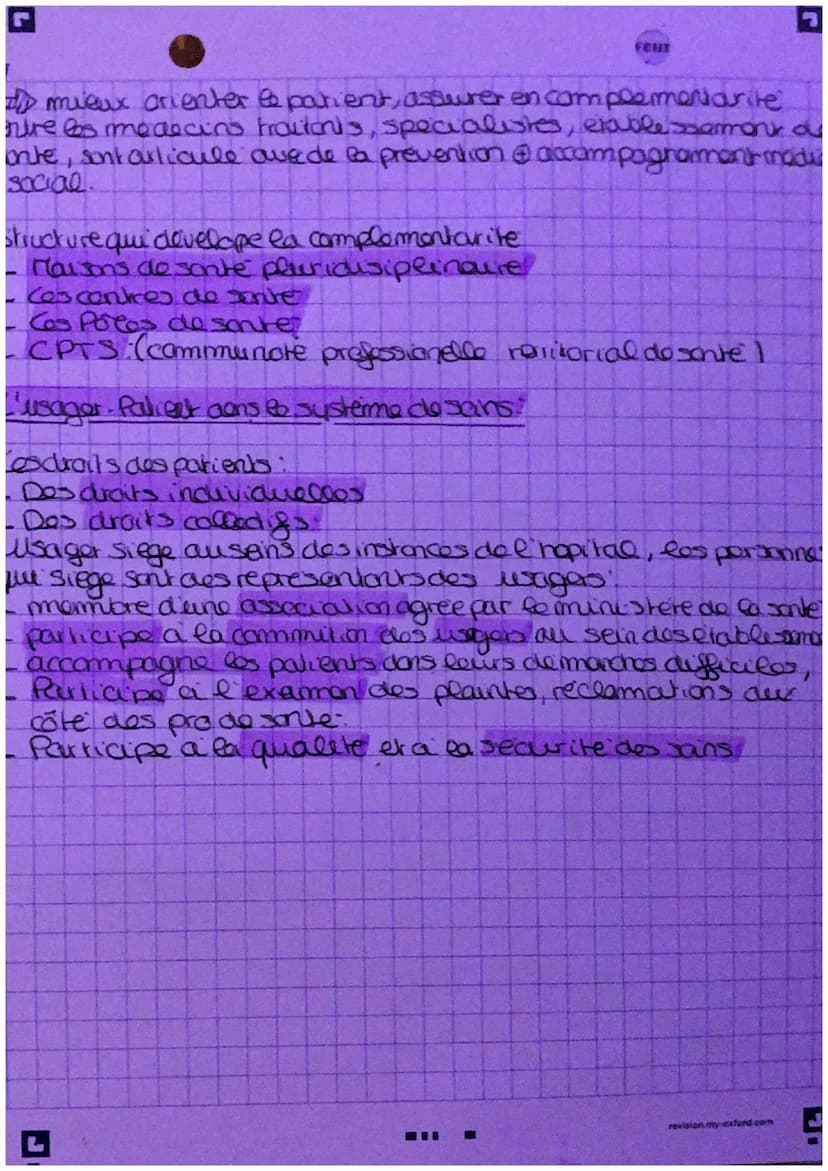 mieux orienter le patient, assurer en complementarite
ntre les medecins traitants, specialistes, etablessement d
ante, sont articule avec de la prévention ⊕ accompagnement médi
social.
structure qui dévelope la complementarite
- Maisons de santé pluridisiplinaire
- Les centres de sante
- Les Pôles de sante,
- CPTS : (communoté professionelle territorial de sante)
L'usager - Patient dans le système de soins :
es droits des patients :
- Des droits individuelles
- Des droits collectifs :
Usager siege au seins des instances de l'hopital, les personne
qui siege sont des representants des usagers :
- membre d'une association agree par le ministère de la sante
- participe à la commission des usagers au sein des établesseme
- accompagne les patients dans leurs demarches difficiles,
- Participe à l'examen des plaintes, réclamations aux
côté des pro de sante.
- Participe à la qualite et à la sécurité des soins
revision.my-oxford.com